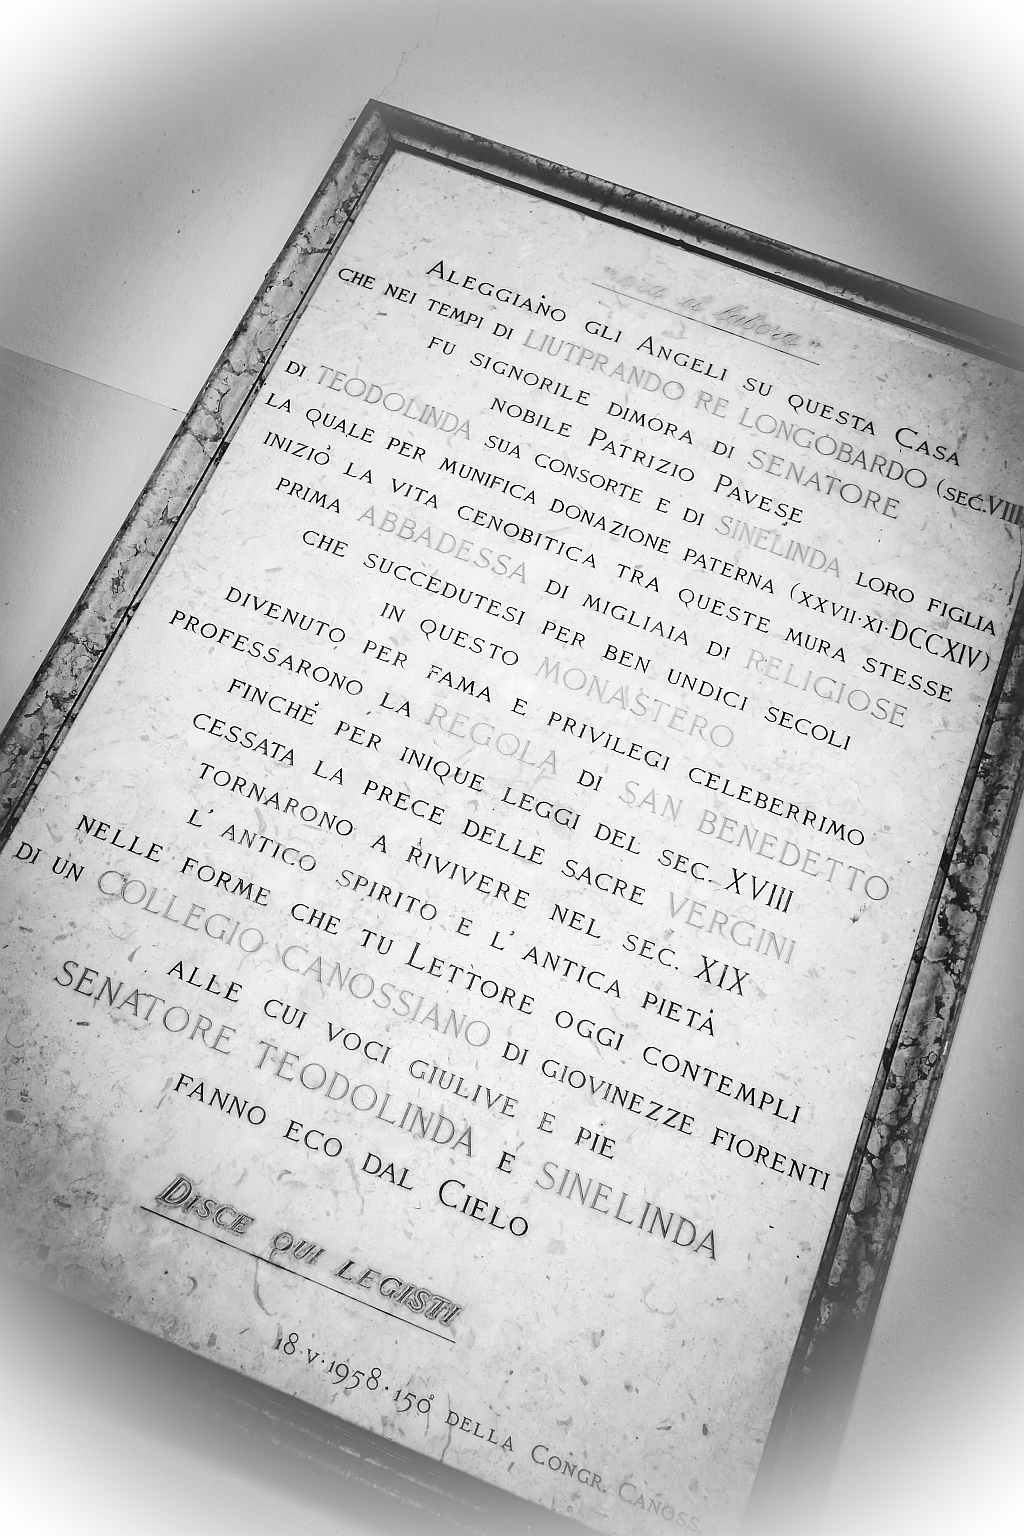 "ora et labora"
ALEGGIANO GLI ANGELI SU QUESTA CASA
CHE NEI TEMPI DI LIUTPRANDO RE LONGOBARDO (SEC. VIII
FU SIGNORILE DIMORA DI SENATORE
NOBILE PATRIZIO PAVESE
DI TEODOLINDA SUA CONSORTE E DI SINELINDA LORO FIGLIA
LA QUALE PER MUNIFICA DONAZIONE PATERNA (XXVII·XI·DCCXIV)
INIZIÒ LA VITA CENOBITICA TRA QUESTE MURA STESSE
PRIMA ABBADESSA DI MIGLIAIA DI RELIGIOSE
CHE SUCCEDUTESI PER BEN UNDICI SECOLI
IN QUESTO MONASTERO
DIVENUTO PER FAMA E PRIVILEGI CELEBERRIMO
PROFESSARONO LA REGOLA DI SAN BENEDETTO
FINCHÈ PER INIQUE LEGGI DEL SEC. XVIII
CESSATA LA PRECE DELLE SACRE VERGINI
TORNARONO A RIVIVERE NEL SEC. XIX
L'ANTICO SPIRITO E L'ANTICA PIETÀ
NELLE FORME CHE TU LETTORE OGGI CONTEMPLI
DI UN COLLEGIO CANOSSIANO DI GIOVINEZZE FIORENTI
ALLE CUI VOCI GIULIVE E PIE
SENATORE TEODOLINDA E SINELINDA
FANNO ECO DAL CIELO
DISCE QUI LEGISTI
18·V·1958·150° DELLA CONGR. CANOSS.